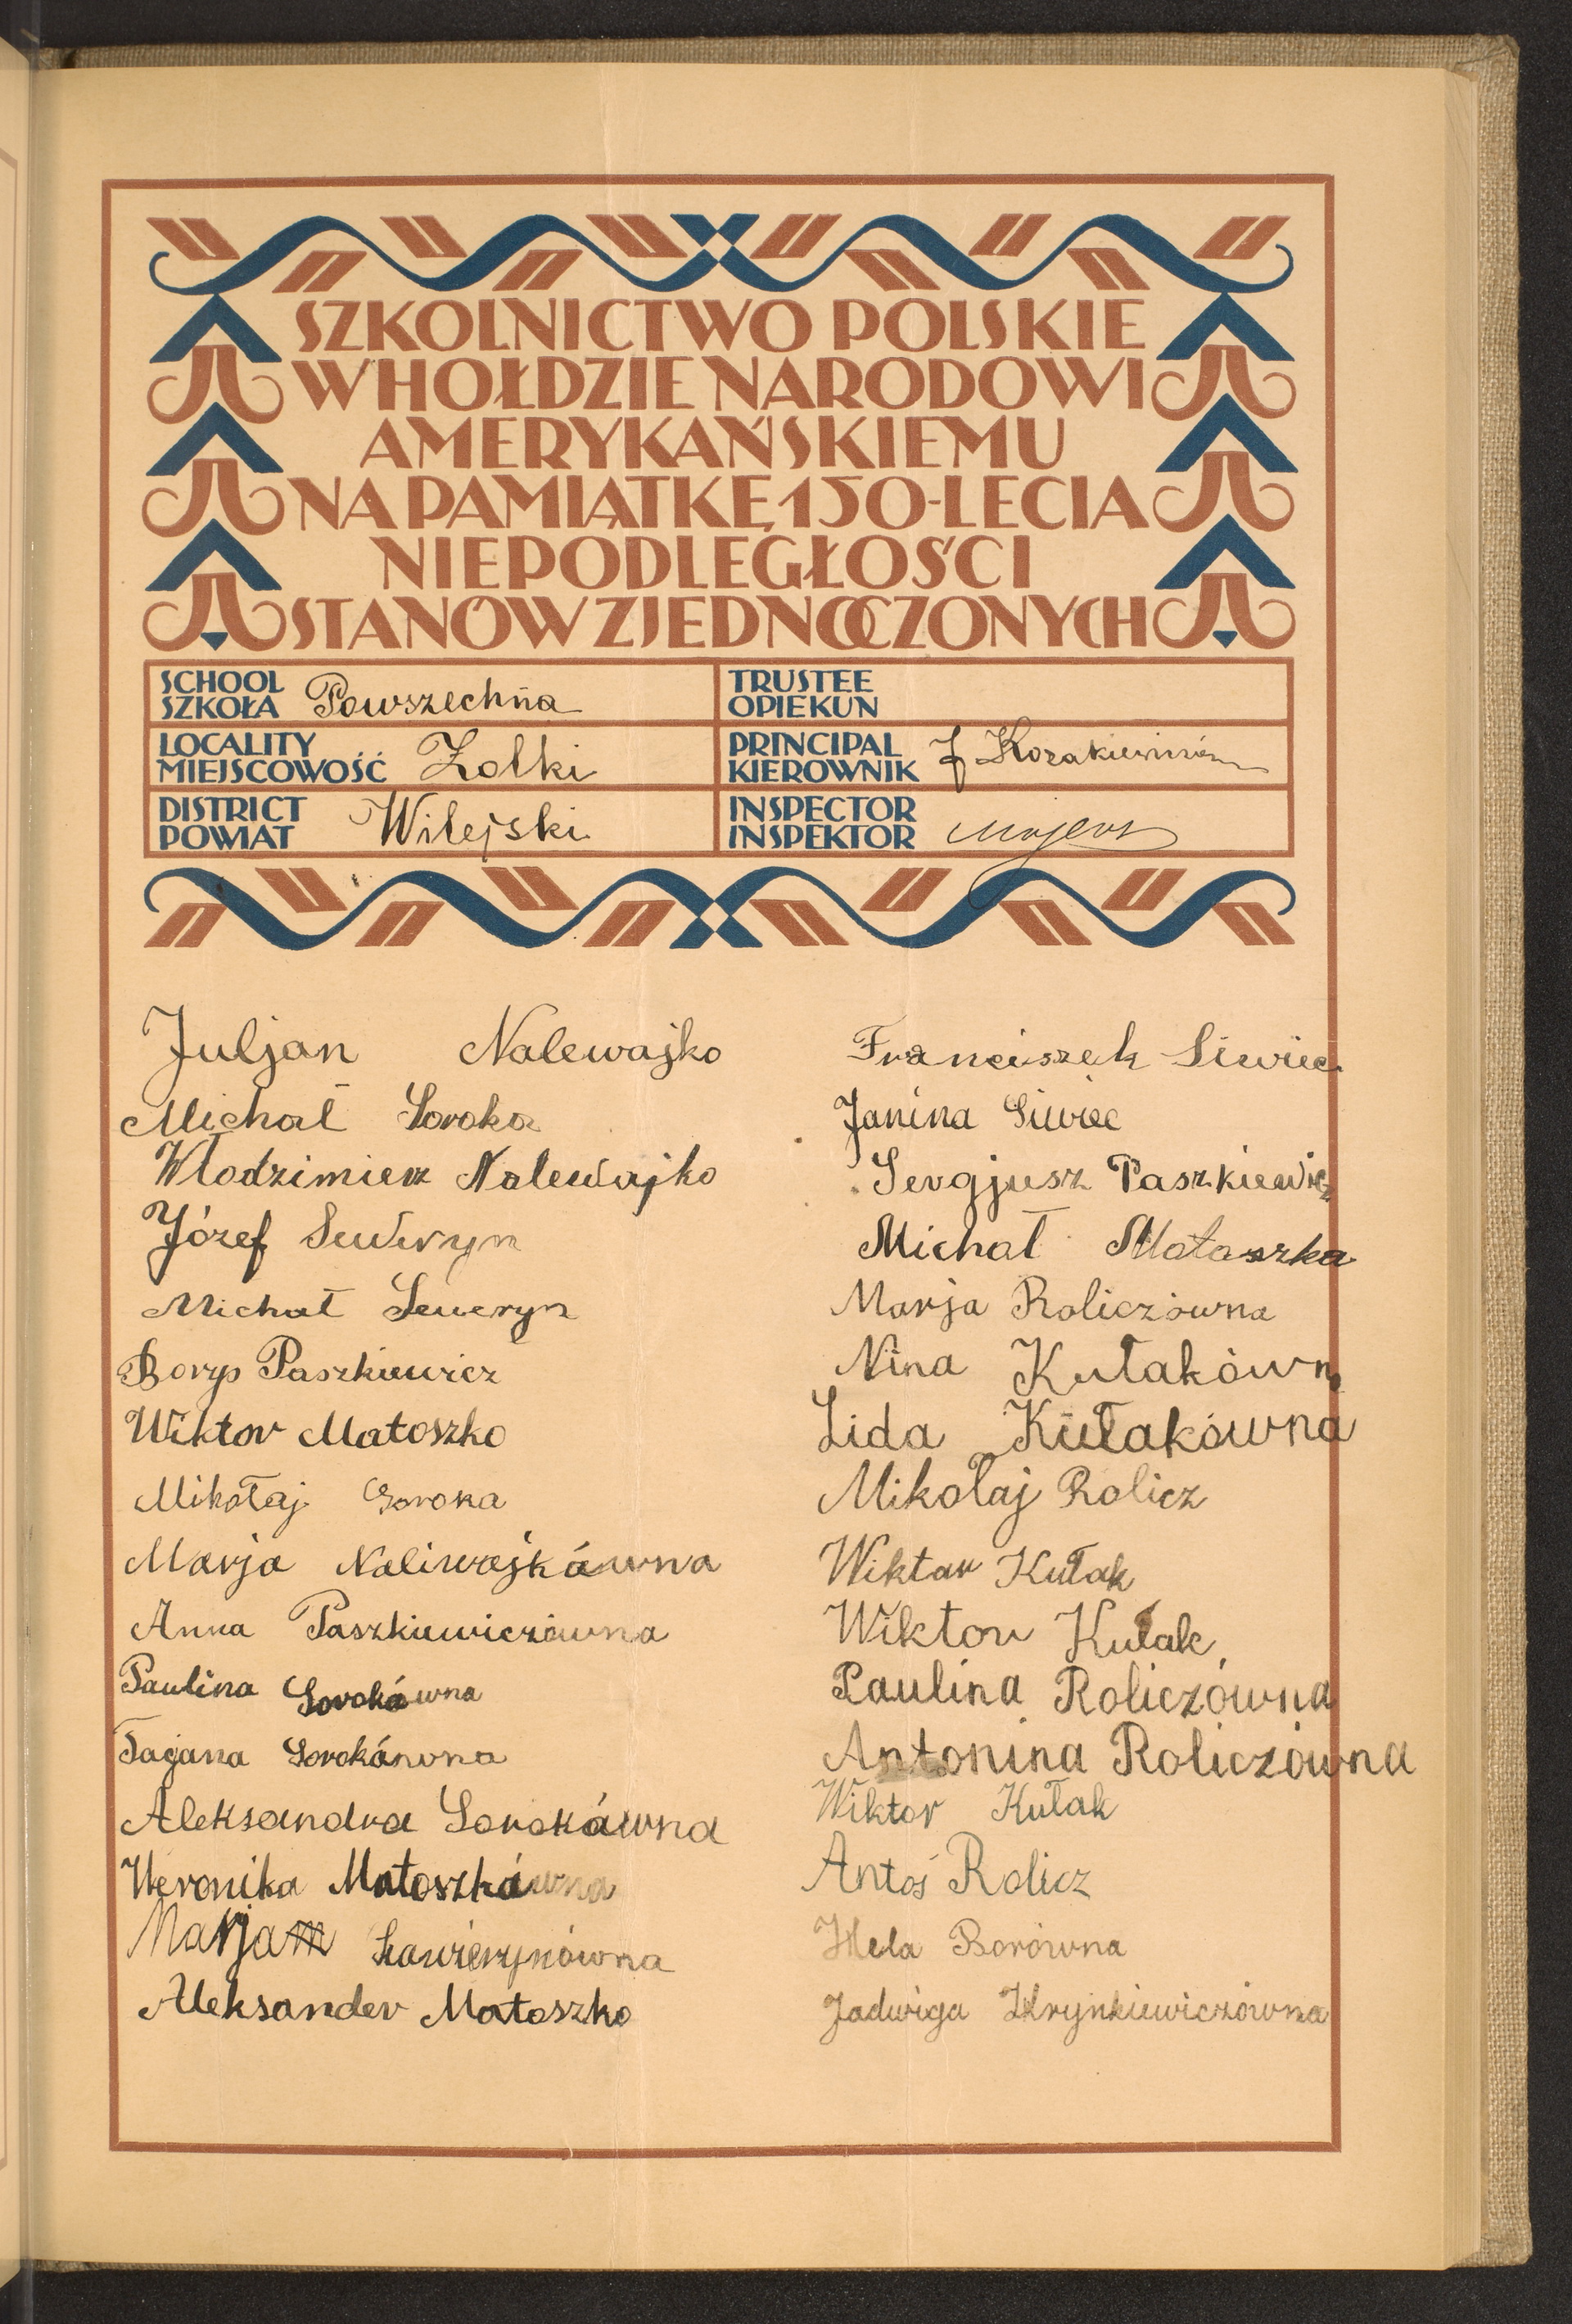 SZKOLNICTWO POLSKIE
W HOŁDZIE NARODOWI
AMERYKAŃSKIEMU
NA PAMIĄTKĘ 150-LECIA
NIEPODLEGŁOŚCI
STANÓW ZJEDNOCZONYCH
SCHOOL
SZKOŁA Powszechna
TRUSTEE
OPIEKUN
LOCALITY
MIEJSCOWOŚĆ Zolki
PRINCIPAL
KIEROWNIK J Kozakiewicz
DISTRICT
POWIAT Wilejski
INSPECTOR
INSPEKTOR
Juljan Nalewajko
Michał Soroka
Włodzimierz Nalewajko
Józef Seweryn
Michał Seweryn
Borys Paszkiewicz
Wiktor Matoszko
Mikołaj Soroka
Marja Naliwajkówna
Anna Paszkiewiczówna
Paulina Sorokówna
Tacjana Sorokówna
Aleksandra Sorokówna
Weronika Matoszkówna
Marja Sawierynówna
Aleksander Matoszko
Franciszek Siwiec
Janina Siwiec
Sergjusz Paszkiewicz
Michał Mataszka
Marja Roliczówna
Nina Kułakówna
Lida Kułakówna
Mikołaj Rolicz
Wiktar Kułak
Wiktor Kułak
Paulina Roliczówna
Antonina Roliczówna
Wiktor Kułak
Antoś Rolicz
Hela Borówna
Jadwiga Hrynkiewiczówna